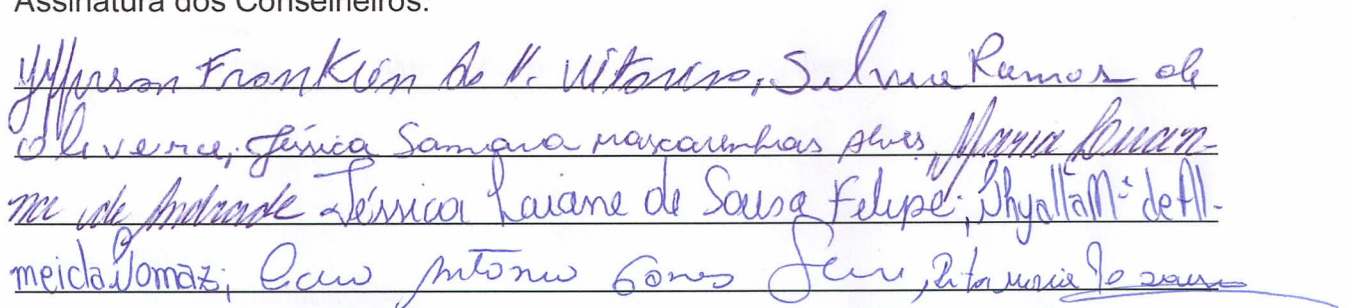 Assinatura dos Conselheiros:
Jefferson Franklin do N. Vitorino, Silvia Ramos de
Oliveira, Jéssica Samara Mascarenhas Alves, Maria Luan-
na de Andrade Jéssica Laiane de Sousa Felipe; Thyalla Mª de Al-
meida Tomaz; Antônio Gomes , Rita Maria de Sousa